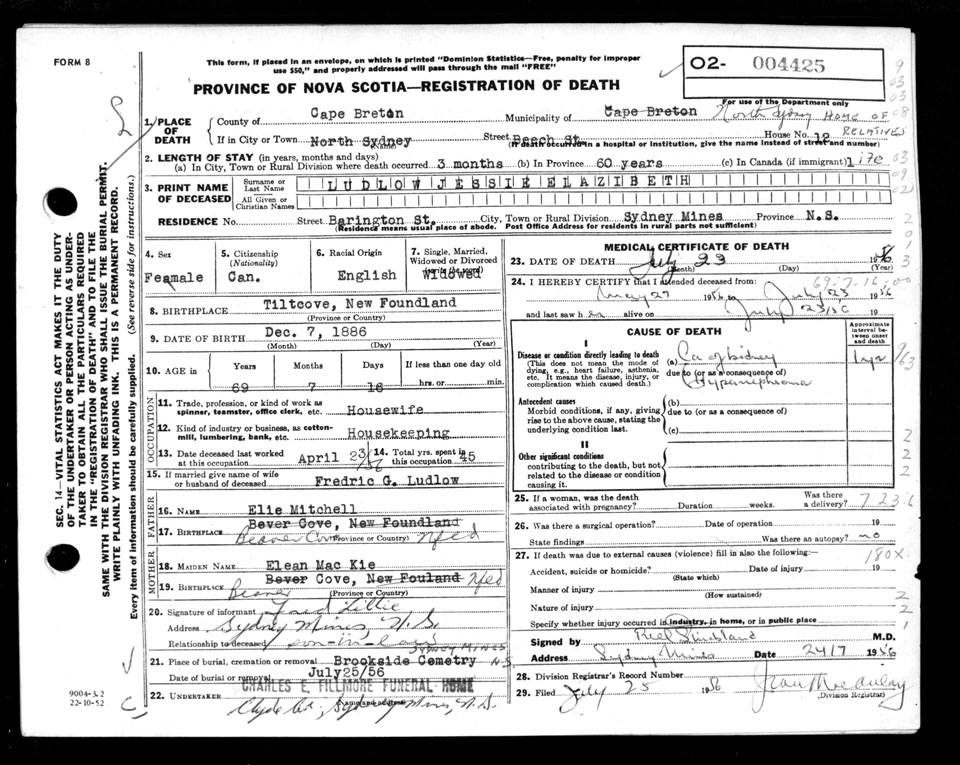 FORM 8
This form, if placed in an envelope, on which is printed "Dominion Statistics—Free, penalty for improper
use $50," and properly addressed will pass through the mail "FREE"
O2- 004425
PROVINCE OF NOVA SCOTIA—REGISTRATION OF DEATH
For use of the Department only
1. PLACE OF DEATH
County of Cape Breton Municipality of Cape Breton North Sydney HOME OF
If in City or Town North Sydney Street Beach St. House No. 12 RELATIVES
(Name) (If death occurred in a hospital or institution, give the name instead of street and number)
2. LENGTH OF STAY (in years, months and days)
(a) In City, Town or Rural Division where death occurred 3 months (b) In Province 60 years (c) In Canada (if immigrant) life
3. PRINT NAME OF DECEASED
Surname or Last Name LUDLOW JESSIE ELAZIBETH
All Given or Christian Names
RESIDENCE No. Street Barington St. City, Town or Rural Division Sydney Mines Province N.S.
(Residence means usual place of abode. Post Office Address for residents in rural parts not sufficient)
4. Sex 5. Citizenship (Nationality) 6. Racial Origin 7. Single, Married, Widowed or Divorced (write the word)
Feamale Can. English Widowed
8. BIRTHPLACE Tiltcove, New Foundland
(Province or Country)
9. DATE OF BIRTH Dec. 7, 1886
(Month) (Day) (Year)
10. AGE in Years Months Days If less than one day old
69 7 16 hrs. or min.
OCCUPATION
11. Trade, profession, or kind of work as
spinner, teamster, office clerk, etc. Housewife
12. Kind of industry or business, as cotton-
mill, lumbering, bank, etc. Housekeeping
13. Date deceased last worked at this occupation April 23/56 14. Total yrs. spent in this occupation 45
15. If married give name of wife
or husband of deceased Fredric G. Ludlow
FATHER
16. NAME Elie Mitchell
Bever Cove, New Foundland
17. BIRTHPLACE Beaver Cove Nfld
(Province or Country)
MOTHER
18. MAIDEN NAME Elean Mac Kie
Bever Cove, New Fouland Nfld
19. BIRTHPLACE Beaver
(Province or Country)
20. Signature of informant Fred Lillie
Address Sydney Mines, N.S.
Relationship to deceased son-in-law
SYDNEY MINES
21. Place of burial, cremation or removal Brookside Cemetry N.S.
Date of burial or removal July25/56
CHARLES E. FILLMORE FUNERAL HOME
22. UNDERTAKER (Name and address)
Clyde Av, Sydney Mines, N.S.
9004-3.2
22-10-52
SEC. 14—VITAL STATISTICS ACT MAKES IT THE DUTY
OF THE UNDERTAKER OR PERSON ACTING AS UNDER-
TAKER TO OBTAIN ALL THE PARTICULARS REQUIRED
IN THE "REGISTRATION OF DEATH" AND TO FILE THE
SAME WITH THE DIVISION REGISTRAR WHO SHALL ISSUE THE BURIAL PERMIT.
WRITE PLAINLY WITH UNFADING INK. THIS IS A PERMANENT RECORD.
Every item of information should be carefully supplied. (See reverse side for instructions.)
MEDICAL CERTIFICATE OF DEATH
23. DATE OF DEATH July 23 56
(Month) (Day) (Year)
24. I HEREBY CERTIFY that I attended deceased from: 69-7-16-00
May 27 1956 to July 23 1956
and last saw h er alive on July 23/56 19
CAUSE OF DEATH
Approximate interval between onset and death
I
Disease or condition directly leading to death
(This does not mean the mode of dying, e.g., heart failure, asthenia, etc. It means the disease, injury, or complication which caused death.)
(a) Ca of kidney 1 yr
due to (or as a consequence of)
(Hypernephroma
Antecedent causes
Morbid conditions, if any, giving rise to the above cause, stating the underlying condition last.
(b)
due to (or as a consequence of)
(c)
II
Other significant conditions
contributing to the death, but not related to the disease or condition causing it.
25. If a woman, was the death associated with pregnancy? Duration weeks. Was there a delivery? 723.6
26. Was there a surgical operation? Date of operation 19
State findings Was there an autopsy? no
27. If death was due to external causes (violence) fill in also the following: 180X
Accident, suicide or homicide? Date of injury 19
(State which)
Manner of injury
(How sustained)
Nature of injury
Specify whether injury occurred in industry, in home, or in public place
Signed by Strickland M.D.
Address Sydney Mines Date 24/7 1956
28. Division Registrar's Record Number
29. Filed July 25 1956
(Division Registrar)